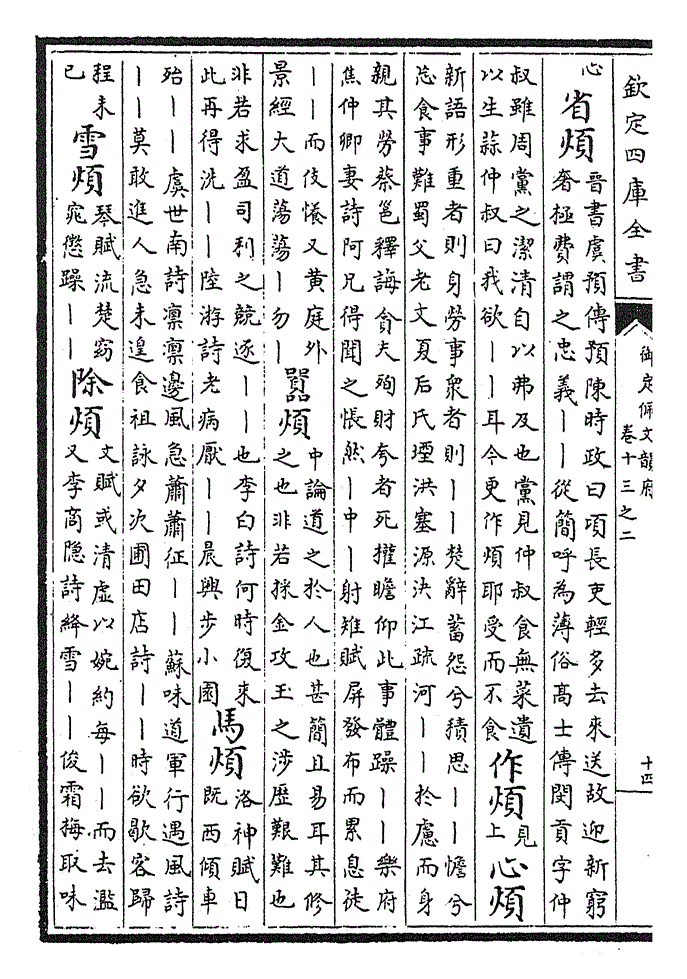 欽定四庫全書
御定佩文韻府
卷十三之二
十四
心
省煩
晉書虞預傳預陳時政曰項長吏輕多去來送故迎新窮
奢極費謂之忠義——從簡呼為薄俗高士傳閔貢字仲
叔雖周黨之潔清自以弗及也黨見仲叔食無菜遺
以生蒜仲叔曰我欲——耳今更作煩耶受而不食
作煩
見
上
心煩
新語形重者則身勞事衆者則——楚辭蓄怨兮積思——憺兮
忘食事難蜀父老文夏后氏堙洪塞源決江疏河——於慮而身
親其勞蔡邕釋誨貪夫殉財夸者死權瞻仰此事體躁——樂府
焦仲卿妻詩阿兄得聞之悵然—中—射雉賦屏發布而累息徒
——而伎懩又黃庭外
景經大道蕩蕩—勿—
囂煩
中論道之於人也甚簡且易耳其修
之也非若採金攻玉之涉歷艱難也
非若求盈司利之競逐——也李白詩何時復來
此再得洗——陸游詩老病厭——晨興步小園
馬煩
洛神賦日
既西傾車
殆——虞世南詩凜凜邊風急蕭蕭征——蘇味道軍行遇風詩
——莫敢進人急未遑食祖詠夕次圃田店詩——時欲歇客歸
程未
已
雪煩
琴賦流楚窈
窕懲躁——
除煩
文賦或清虛以婉約每——而去濫
又李商隱詩絳雪——俊霜梅取味